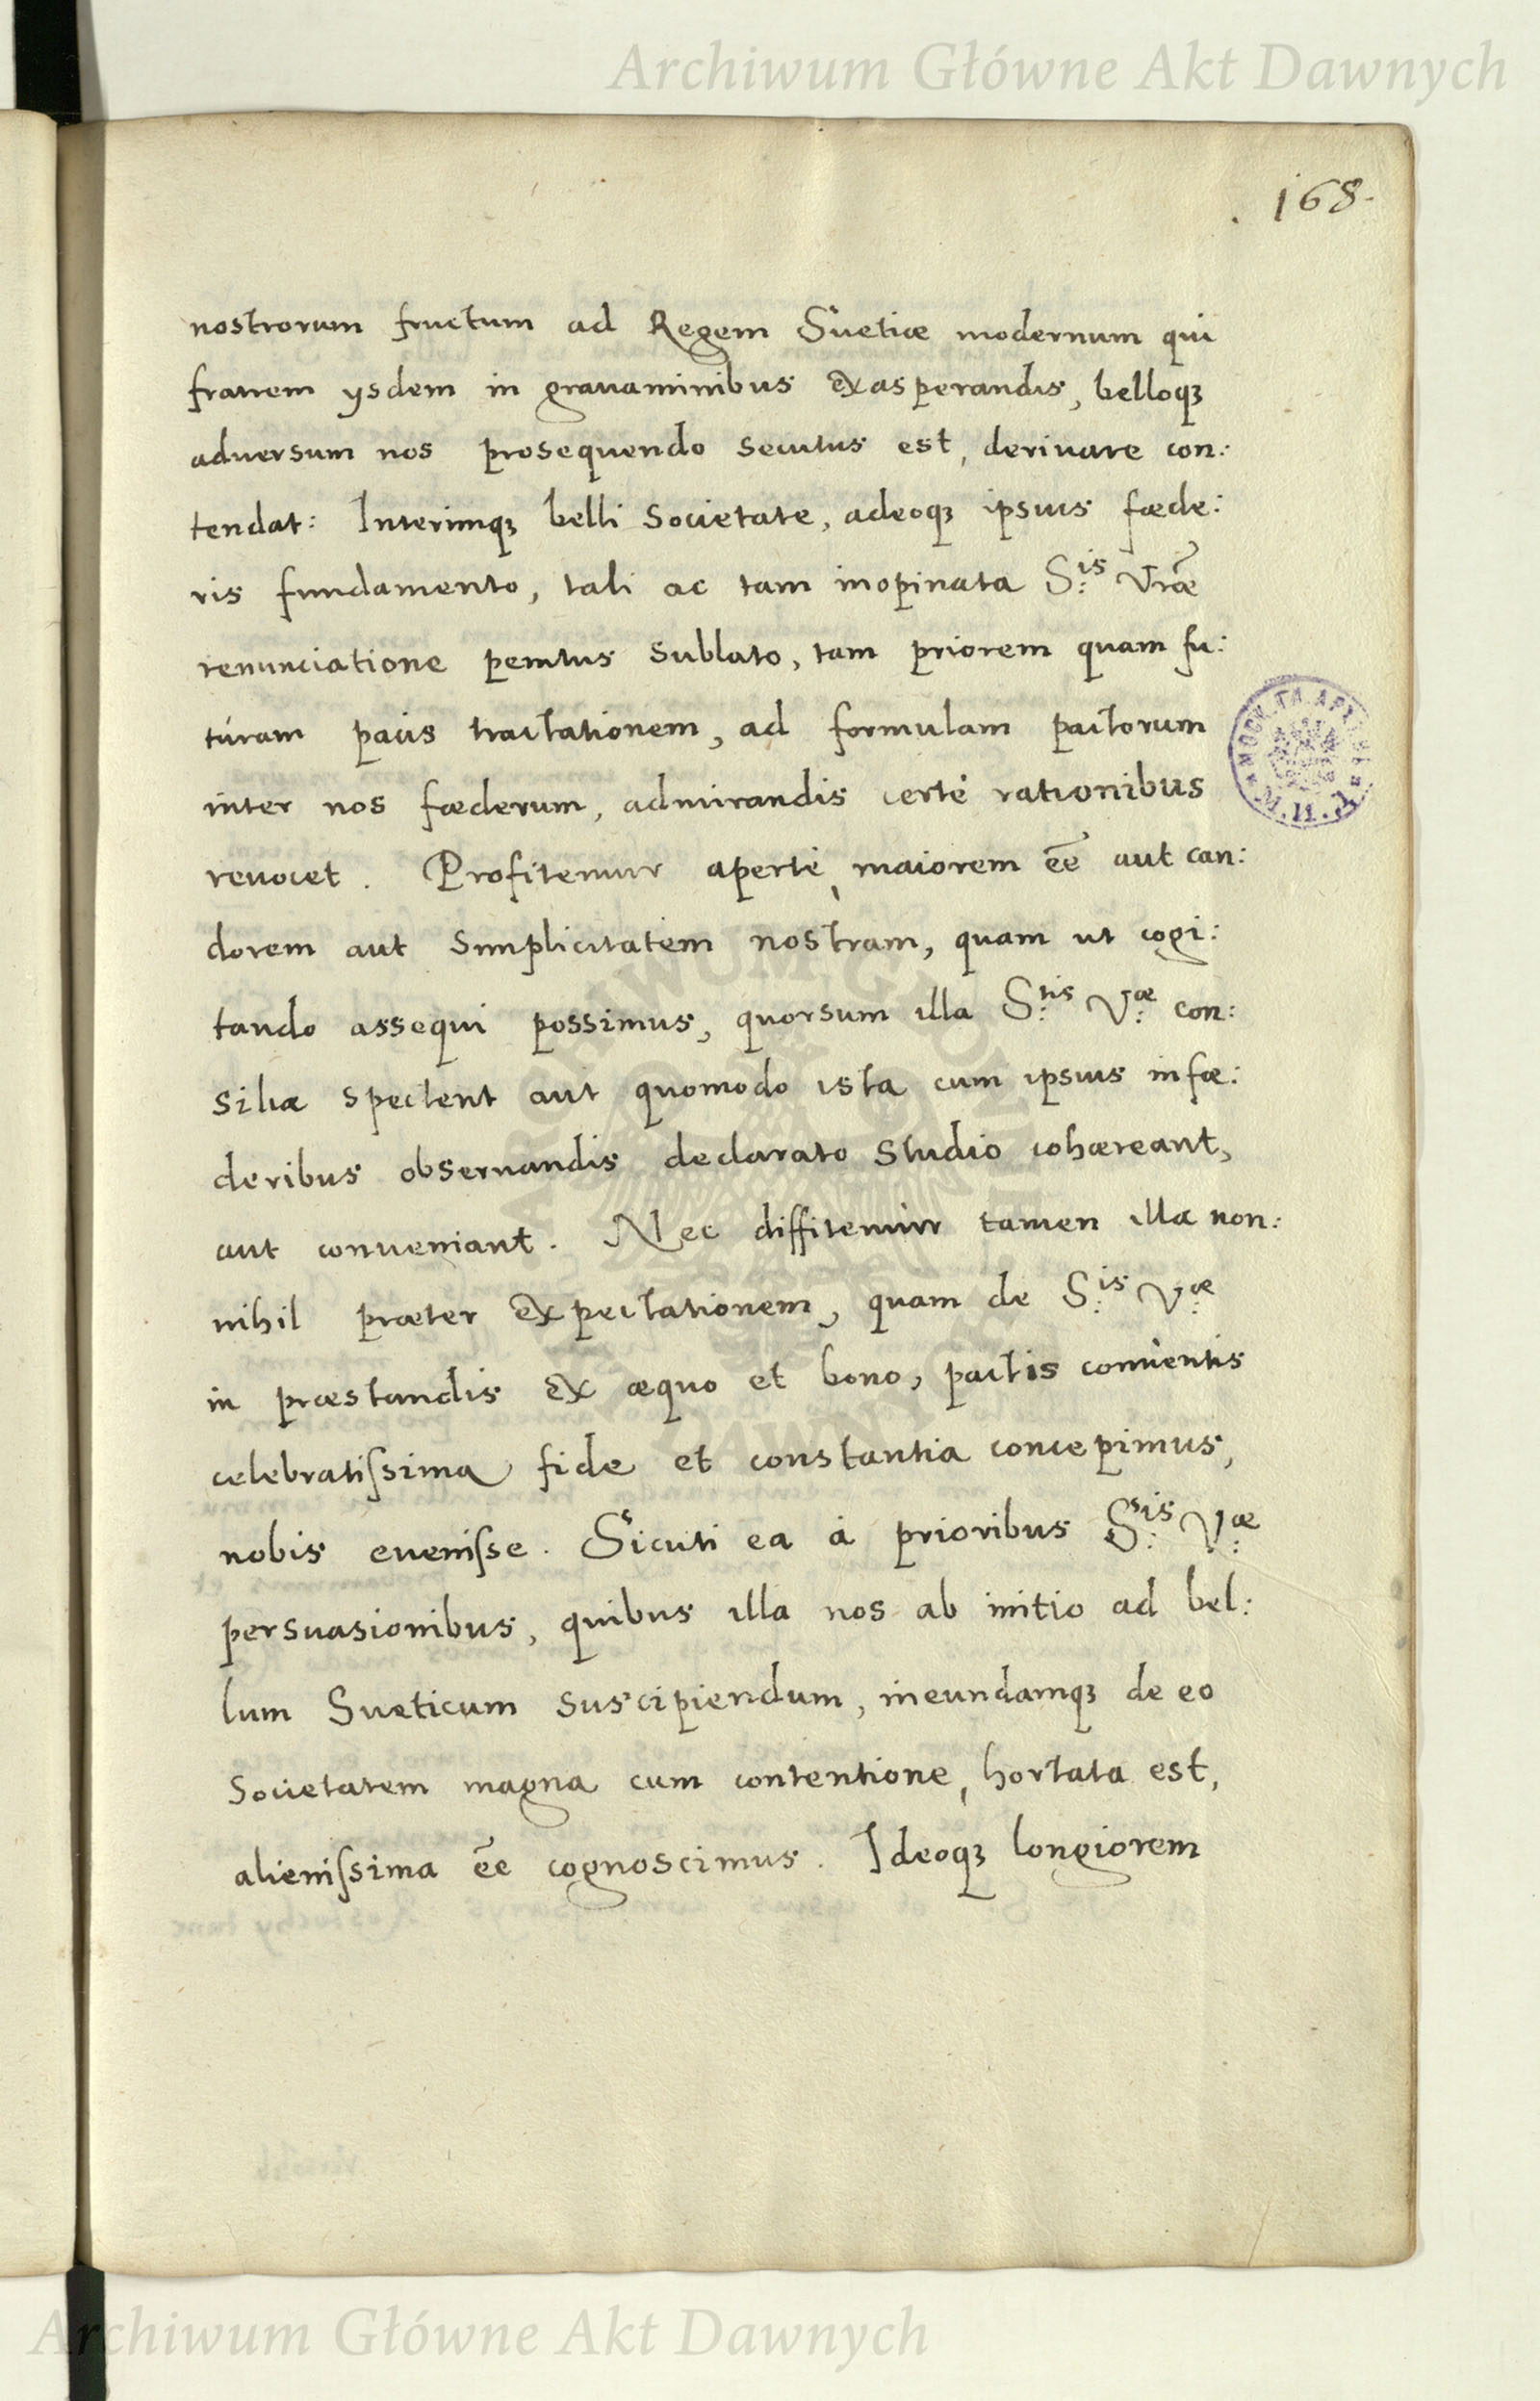 Archiwum Główne Akt Dawnych
168.
nostrorum fructum ad Regem Suetiæ modernum qui
fratrem ysdem in grauaminibus exasperandis, belloqꝫ
aduersum nos prosequendo secutus est, deriuare con:
tendat: Interimqꝫ belli societate, adeoqꝫ ipsius fœde:
ris fundamento, tali ac tam inopinata S:is Vræ̃
renunciatione penitus sublato, tam priorem quam fu:
túram pacis tractationem, ad formulam pactorum
inter nos fœderum, admirandis certè rationibus
reuocet. Profitemur apertè, maiorem eẽ aut can:
dorem aut simplicitatem nostram, quam ut cogi:
tando assequi possimus, quorsum illa S:tis V:æ con:
silia spectent aut quomodo ista cum ipsius in fœ:
deribus obseruandis declarato studio cohæreant,
aut conueniant. Nec diffitemur tamen illa non:
nihil præter expectationem, quam de S:is V:æ
in præstandis ex æquo et bono, pactis conuentis
celebratiſsima fide et constantia concepimus,
nobis eueniſse. Sicuti ea à prioribus S:is V:æ
persuasionibus, quibus illa nos ab initio ad bel:
lum Sueticum suscipiendum, ineundamqꝫ de eo
societatem magna cum contentione, hortata est,
alieniſsima eẽ cognoscimus. Ideoqꝫ longiorem
Archiwum Główne Akt Dawnych